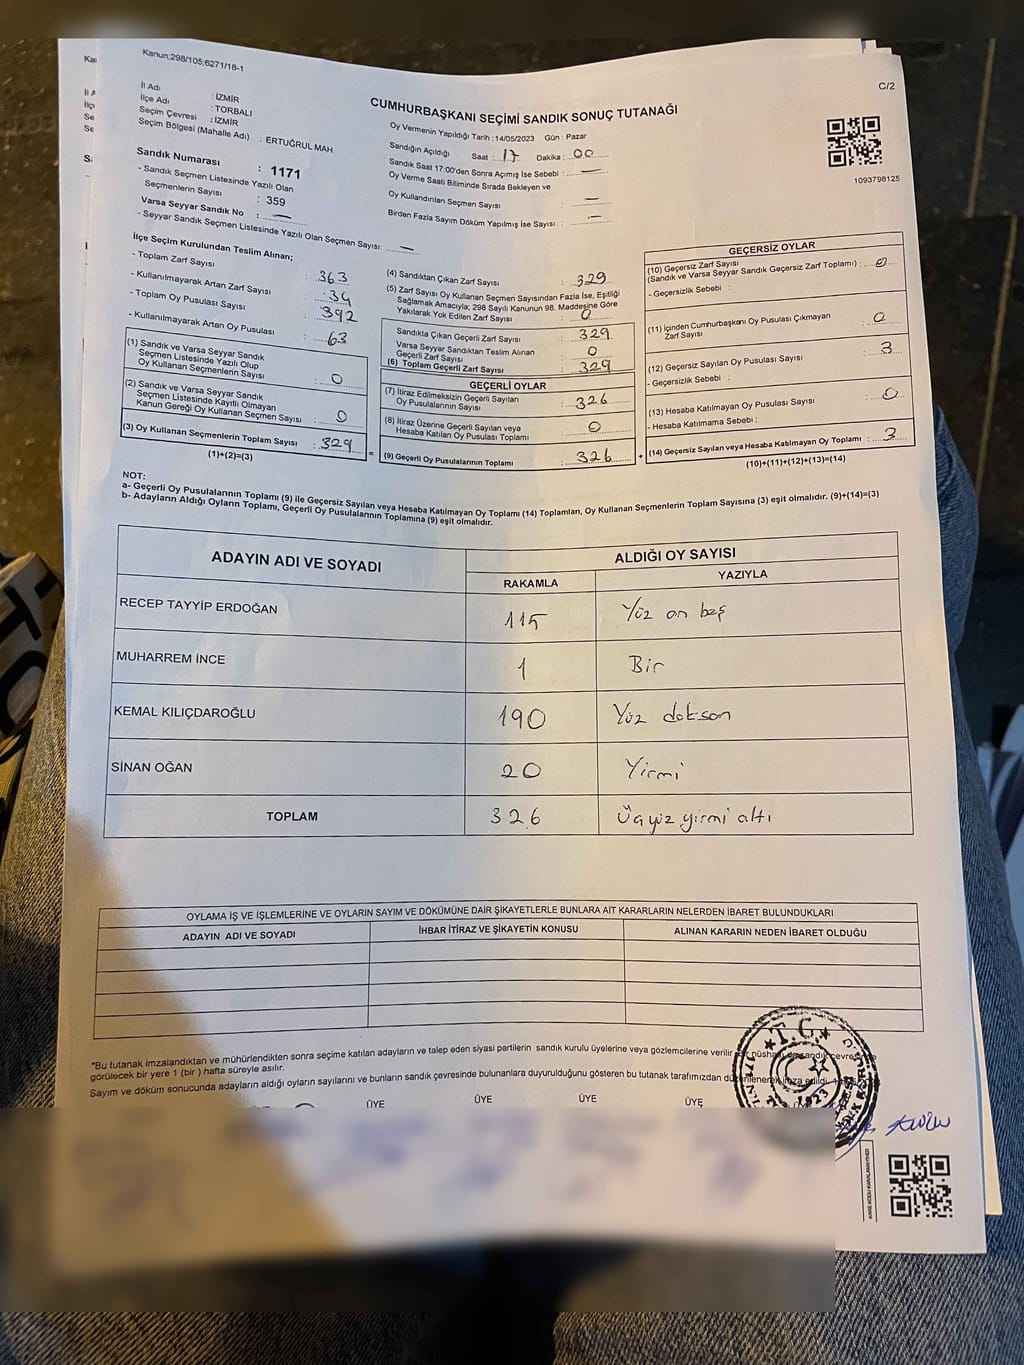 Kanun;298/105;6271/18-1
C/2
İl Adı : İZMİR
İlçe Adı : TORBALI
Seçim Çevresi : İZMİR
Seçim Bölgesi (Mahalle Adı) : ERTUĞRUL MAH.
CUMHURBAŞKANI SEÇİMİ SANDIK SONUÇ TUTANAĞI
Oy Vermenin Yapıldığı Tarih : 14/05/2023 Gün : Pazar
Sandığın Açıldığı Saat : 17 Dakika : 00
Sandık Saat 17:00'den Sonra Açımış İse Sebebi : —
Oy Verme Saati Bitiminde Sırada Bekleyen ve
Oy Kullandırılan Seçmen Sayısı : —
Birden Fazla Sayım Döküm Yapılmış İse Sayısı : —
1093798125
Sandık Numarası : 1171
- Sandık Seçmen Listesinde Yazılı Olan
Seçmenlerin Sayısı : 359
Varsa Seyyar Sandık No : —
- Seyyar Sandık Seçmen Listesinde Yazılı Olan Seçmen Sayısı: —
İlçe Seçim Kurulundan Teslim Alınan;
- Toplam Zarf Sayısı : 363
- Kullanılmayarak Artan Zarf Sayısı : 34
- Toplam Oy Pusulası Sayısı : 392
- Kullanılmayarak Artan Oy Pusulası : 63
(1) Sandık ve Varsa Seyyar Sandık
Seçmen Listesinde Yazılı Olup
Oy Kullanan Seçmenlerin Sayısı : 0
(2) Sandık ve Varsa Seyyar Sandık
Seçmen Listesinde Kayıtlı Olmayan
Kanun Gereği Oy Kullanan Seçmen Sayısı : 0
(3) Oy Kullanan Seçmenlerin Toplam Sayısı : 329
(1)+(2)=(3)
(4) Sandıktan Çıkan Zarf Sayısı : 329
(5) Zarf Sayısı Oy Kullanan Seçmen Sayısından Fazla İse, Eşitliği
Sağlamak Amacıyla; 298 Sayılı Kanunun 98. Maddesine Göre
Yakılarak Yok Edilen Zarf Sayısı : 0
Sandıkta Çıkan Geçerli Zarf Sayısı : 329
Varsa Seyyar Sandıktan Teslim Alınan
Geçerli Zarf Sayısı : 0
(6) Toplam Geçerli Zarf Sayısı : 329
GEÇERLİ OYLAR
(7) İtiraz Edilmeksizin Geçerli Sayılan
Oy Pusulalarının Sayısı : 326
(8) İtiraz Üzerine Geçerli Sayılan veya
Hesaba Katılan Oy Pusulası Toplamı : 0
= (9) Geçerli Oy Pusulalarının Toplamı : 326 +
GEÇERSİZ OYLAR
(10) Geçersiz Zarf Sayısı
(Sandık ve Varsa Seyyar Sandık Geçersiz Zarf Toplamı) : 0
- Geçersizlik Sebebi :
(11) İçinden Cumhurbaşkanı Oy Pusulası Çıkmayan
Zarf Sayısı : 0
(12) Geçersiz Sayılan Oy Pusulası Sayısı : 3
- Geçersizlik Sebebi :
(13) Hesaba Katılmayan Oy Pusulası Sayısı : 0
- Hesaba Katılmama Sebebi :
(14) Geçersiz Sayılan veya Hesaba Katılmayan Oy Toplamı : 3
(10)+(11)+(12)+(13)=(14)
NOT:
a- Geçerli Oy Pusulalarının Toplamı (9) ile Geçersiz Sayılan veya Hesaba Katılmayan Oy Toplamı (14) Toplamları, Oy Kullanan Seçmenlerin Toplam Sayısına (3) eşit olmalıdır. (9)+(14)=(3)
b- Adayların Aldığı Oyların Toplamı, Geçerli Oy Pusulalarının Toplamına (9) eşit olmalıdır.
ADAYIN ADI VE SOYADI ALDIĞI OY SAYISI
RAKAMLA YAZIYLA
RECEP TAYYİP ERDOĞAN 115 Yüz on beş
MUHARREM İNCE 1 Bir
KEMAL KILIÇDAROĞLU 190 Yüz doksan
SİNAN OĞAN 20 Yirmi
TOPLAM 326 Üçyüz yirmi altı
OYLAMA İŞ VE İŞLEMLERİNE VE OYLARIN SAYIM VE DÖKÜMÜNE DAİR ŞİKAYETLERLE BUNLARA AİT KARARLARIN NELERDEN İBARET BULUNDUKLARI
ADAYIN ADI VE SOYADI İHBAR İTİRAZ VE ŞİKAYETİN KONUSU ALINAN KARARIN NEDEN İBARET OLDUĞU
*Bu tutanak imzalandıktan ve mühürlendikten sonra seçime katılan adayların ve talep eden siyasi partilerin sandık kurulu üyelerine veya gözlemcilerine verilir
görülecek bir yere 1 (bir) hafta süreyle asılır.
Sayım ve döküm sonucunda adayların aldığı oyların sayılarını ve bunların sandık çevresinde bulunanlara duyurulduğunu gösteren bu tutanak tarafımızdan düzenlenerek imza edildi.
ÜYE ÜYE ÜYE ÜYE
T.C.
1923